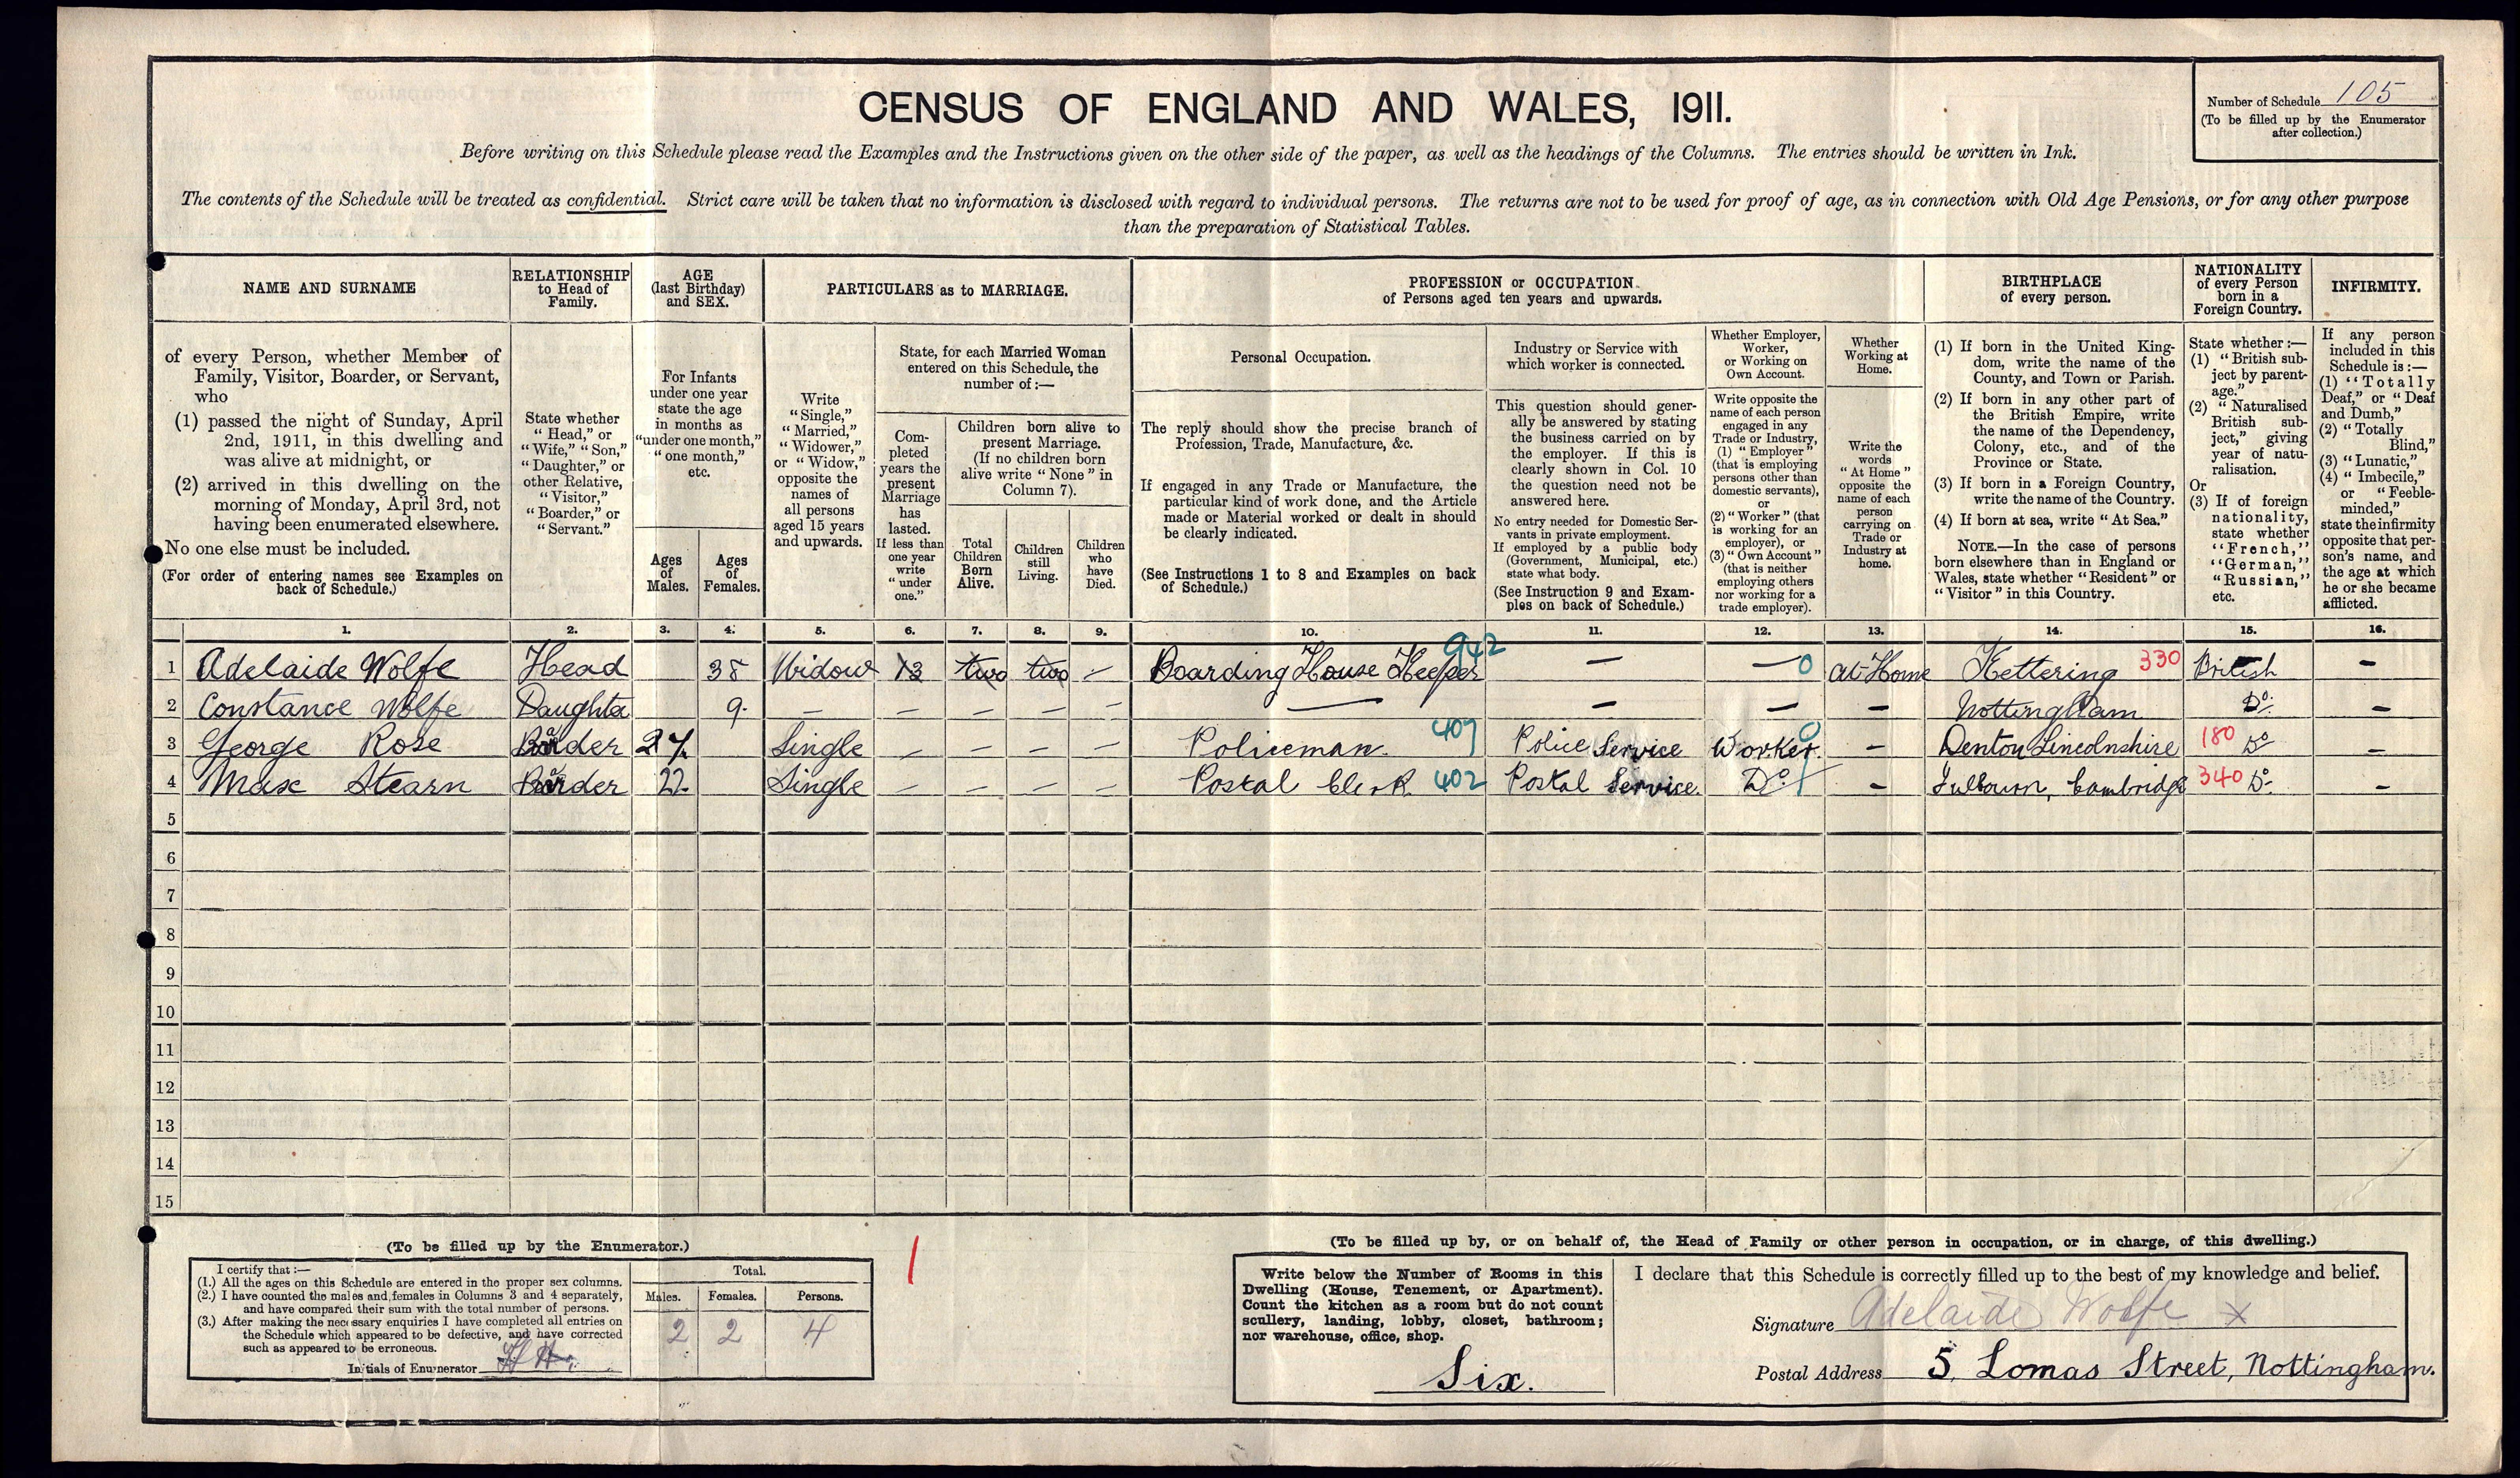 CENSUS OF ENGLAND AND WALES, 1911.
Number of Schedule 105
(To be filled up by the Enumerator
after collection.)
Before writing on this Schedule please read the Examples and the Instructions given on the other side of the paper, as well as the headings of the Columns. The entries should be written in Ink.
The contents of the Schedule will be treated as confidential. Strict care will be taken that no information is disclosed with regard to individual persons. The returns are not to be used for proof of age, as in connection with Old Age Pensions, or for any other purpose
than the preparation of Statistical Tables.
NAME AND SURNAME
of every Person, whether Member of
Family, Visitor, Boarder, or Servant,
who
(1) passed the night of Sunday, April
2nd, 1911, in this dwelling and
was alive at midnight, or
(2) arrived in this dwelling on the
morning of Monday, April 3rd, not
having been enumerated elsewhere.
No one else must be included.
(For order of entering names see Examples on
back of Schedule.)
RELATIONSHIP
to Head of
Family.
State whether
"Head," or
"Wife," "Son,"
"Daughter," or
other Relative,
"Visitor,"
"Boarder," or
"Servant."
AGE
(last Birthday)
and SEX.
For Infants
under one year
state the age
in months as
"under one month,"
"one month,"
etc.
Ages
of
Males.
Ages
of
Females.
PARTICULARS as to MARRIAGE.
Write
"Single,"
"Married,"
"Widower,"
or "Widow,"
opposite the
names of
all persons
aged 15 years
and upwards.
State, for each Married Woman
entered on this Schedule, the
number of:—
Com-
pleted
years the
present
Marriage
has
lasted.
If less than
one year
write
"under
one."
Children born alive to
present Marriage.
(If no children born
alive write "None" in
Column 7).
Total
Children
Born
Alive.
Children
still
Living.
Children
who
have
Died.
PROFESSION or OCCUPATION
of Persons aged ten years and upwards.
Personal Occupation.
The reply should show the precise branch of
Profession, Trade, Manufacture, &c.
If engaged in any Trade or Manufacture, the
particular kind of work done, and the Article
made or Material worked or dealt in should
be clearly indicated.
(See Instructions 1 to 8 and Examples on back
of Schedule.)
Industry or Service with
which worker is connected.
This question should gener-
ally be answered by stating
the business carried on by
the employer. If this is
clearly shown in Col. 10
the question need not be
answered here.
No entry needed for Domestic Ser-
vants in private employment.
If employed by a public body
(Government, Municipal, etc.)
state what body.
(See Instruction 9 and Exam-
ples on back of Schedule.)
Whether Employer,
Worker,
or Working on
Own Account.
Write opposite the
name of each person
engaged in any
Trade or Industry,
(1) "Employer"
(that is employing
persons other than
domestic servants),
or
(2) "Worker" (that
is working for an
employer), or
(3) "Own Account"
(that is neither
employing others
nor working for a
trade employer).
Whether
Working at
Home.
Write the
words
"At Home"
opposite the
name of each
person
carrying on
Trade or
Industry at
home.
BIRTHPLACE
of every person.
(1) If born in the United King-
dom, write the name of the
County, and Town or Parish.
(2) If born in any other part of
the British Empire, write
the name of the Dependency,
Colony, etc., and of the
Province or State.
(3) If born in a Foreign Country,
write the name of the Country.
(4) If born at sea, write "At Sea."
NOTE.—In the case of persons
born elsewhere than in England or
Wales, state whether "Resident" or
"Visitor" in this Country.
NATIONALITY
of every Person
born in a
Foreign Country.
State whether:—
(1) "British sub-
ject by parent-
age."
(2) "Naturalised
British sub-
ject," giving
year of natu-
ralisation.
Or
(3) If of foreign
nationality,
state whether
"French,"
"German,"
"Russian,"
etc.
INFIRMITY.
If any person
included in this
Schedule is:—
(1) "Totally
Deaf," or "Deaf
and Dumb,"
(2) "Totally
Blind,"
(3) "Lunatic,"
(4) "Imbecile,"
or "Feeble-
minded,"
state the infirmity
opposite that per-
son's name, and
the age at which
he or she became
afflicted.
1. 2. 3. 4. 5. 6. 7. 8. 9. 10. 11. 12. 13. 14. 15. 16.
1 Adelaide Wolfe Head 38 Widow 13 two two – Boarding House Keeper 942 – – 0 At Home Kettering 330 British –
2 Constance Wolfe Daughter 9 – – – – – – – – – Nottingham Do. –
3 George Rose Boarder 27 Single – – – – Policeman 407 Police Service Worker 0 – Denton Lincolnshire 180 Do –
4 Max Stearn Boarder 22 Single – – – – Postal Clerk 402 Postal Service. Do. – Fulbourn, Cambridge 340 Do. –
5
6
7
8
9
10
11
12
13
14
15
(To be filled up by the Enumerator.)
I certify that:—
(1.) All the ages on this Schedule are entered in the proper sex columns.
(2.) I have counted the males and females in Columns 3 and 4 separately,
and have compared their sum with the total number of persons.
(3.) After making the necessary enquiries I have completed all entries on
the Schedule which appeared to be defective, and have corrected
such as appeared to be erroneous.
Initials of Enumerator
Total.
Males. Females. Persons.
2 2 4
(To be filled up by, or on behalf of, the Head of Family or other person in occupation, or in charge, of this dwelling.)
Write below the Number of Rooms in this
Dwelling (House, Tenement, or Apartment).
Count the kitchen as a room but do not count
scullery, landing, lobby, closet, bathroom;
nor warehouse, office, shop.
Six.
I declare that this Schedule is correctly filled up to the best of my knowledge and belief.
Signature Adelaide Wolfe X
Postal Address 5, Lomas Street, Nottingham.